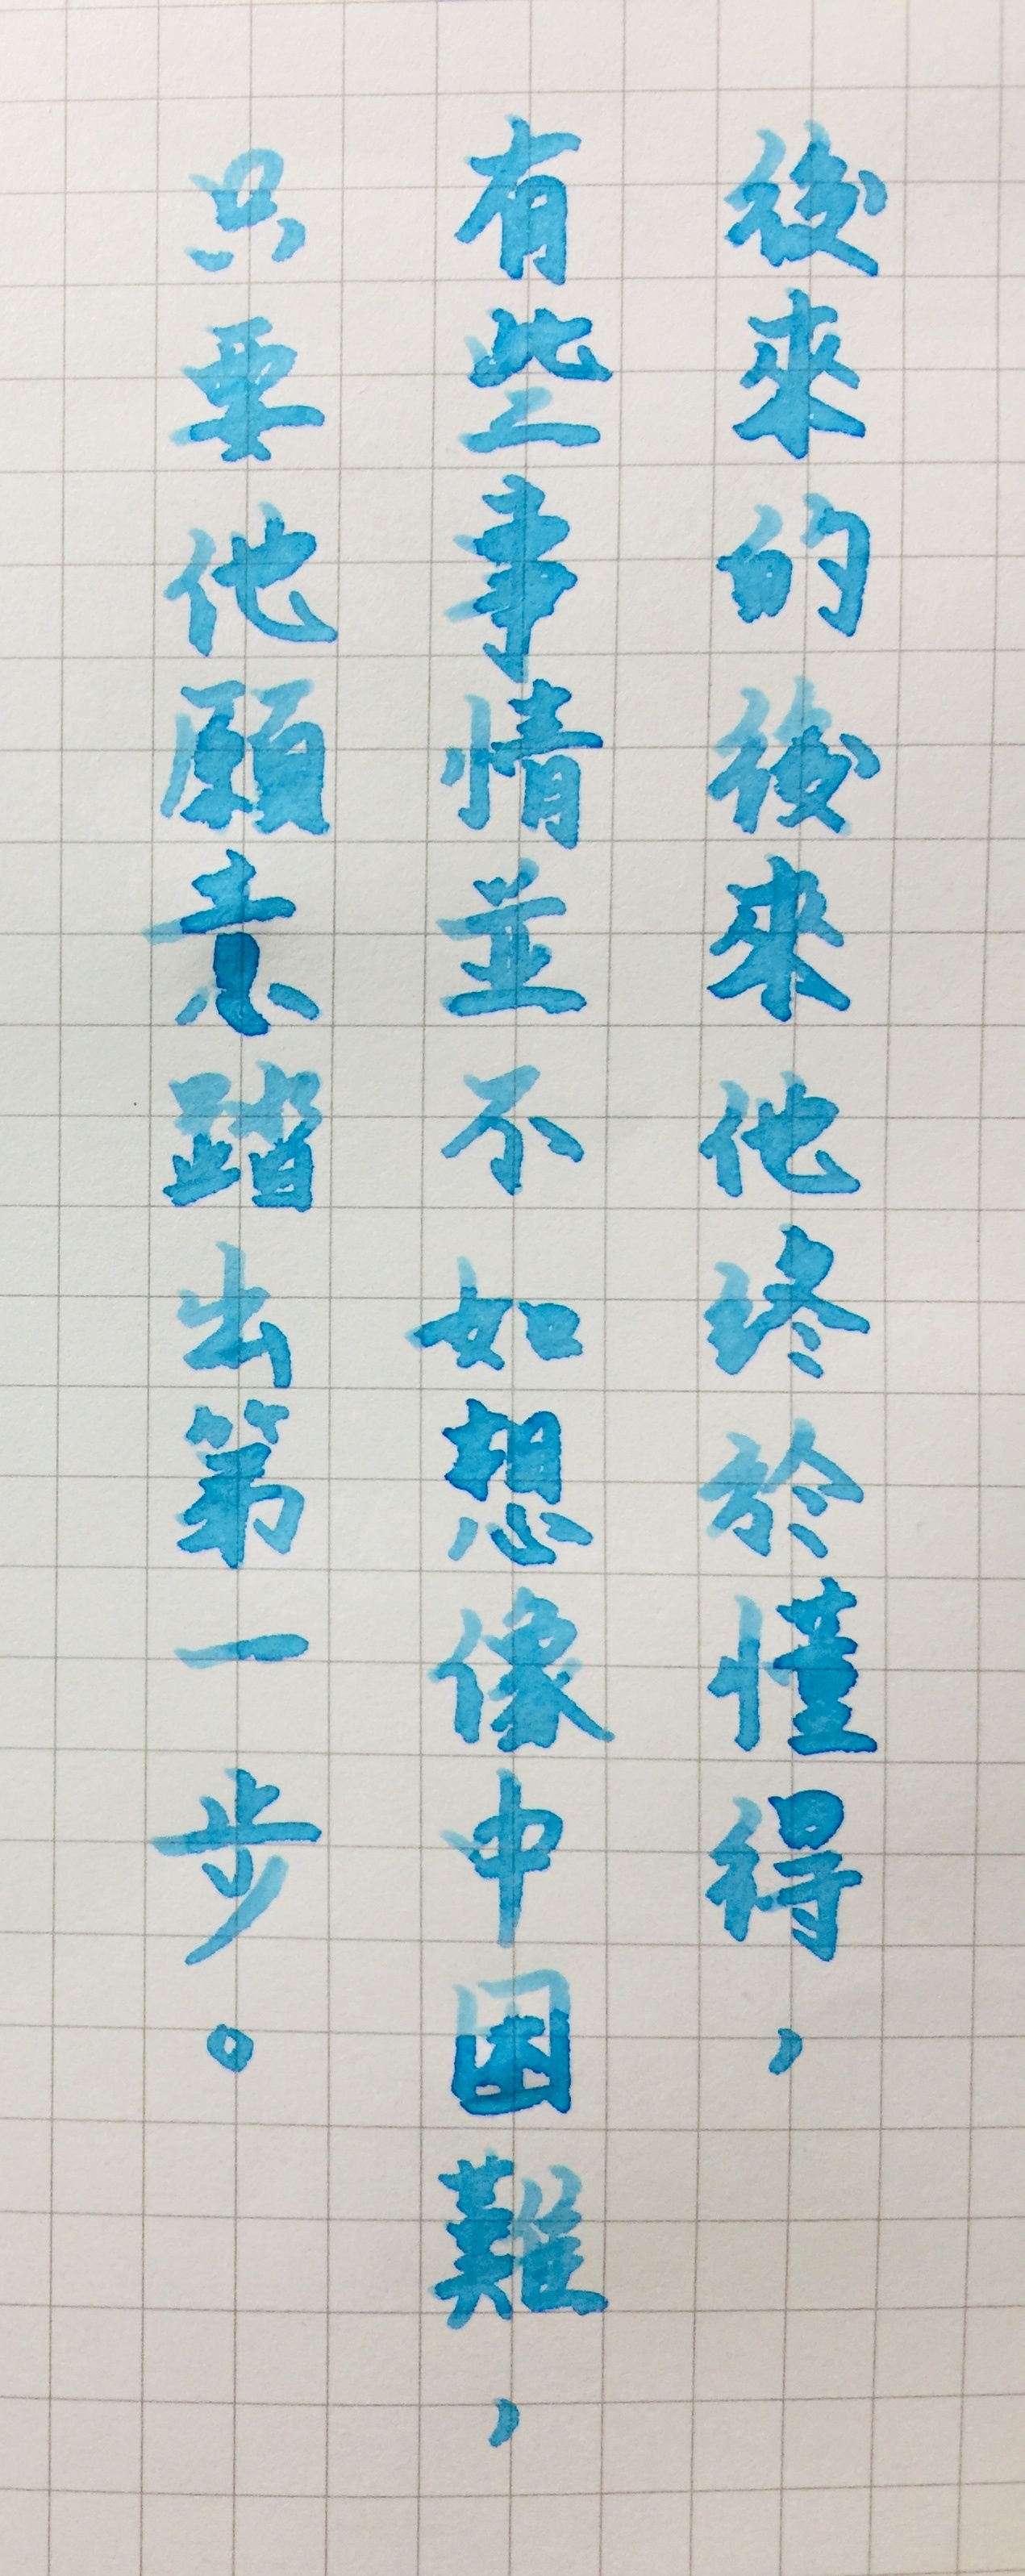 後來的後來他終於懂得，
有些事情並不如想像中困難，
只要他願意踏出第一步。